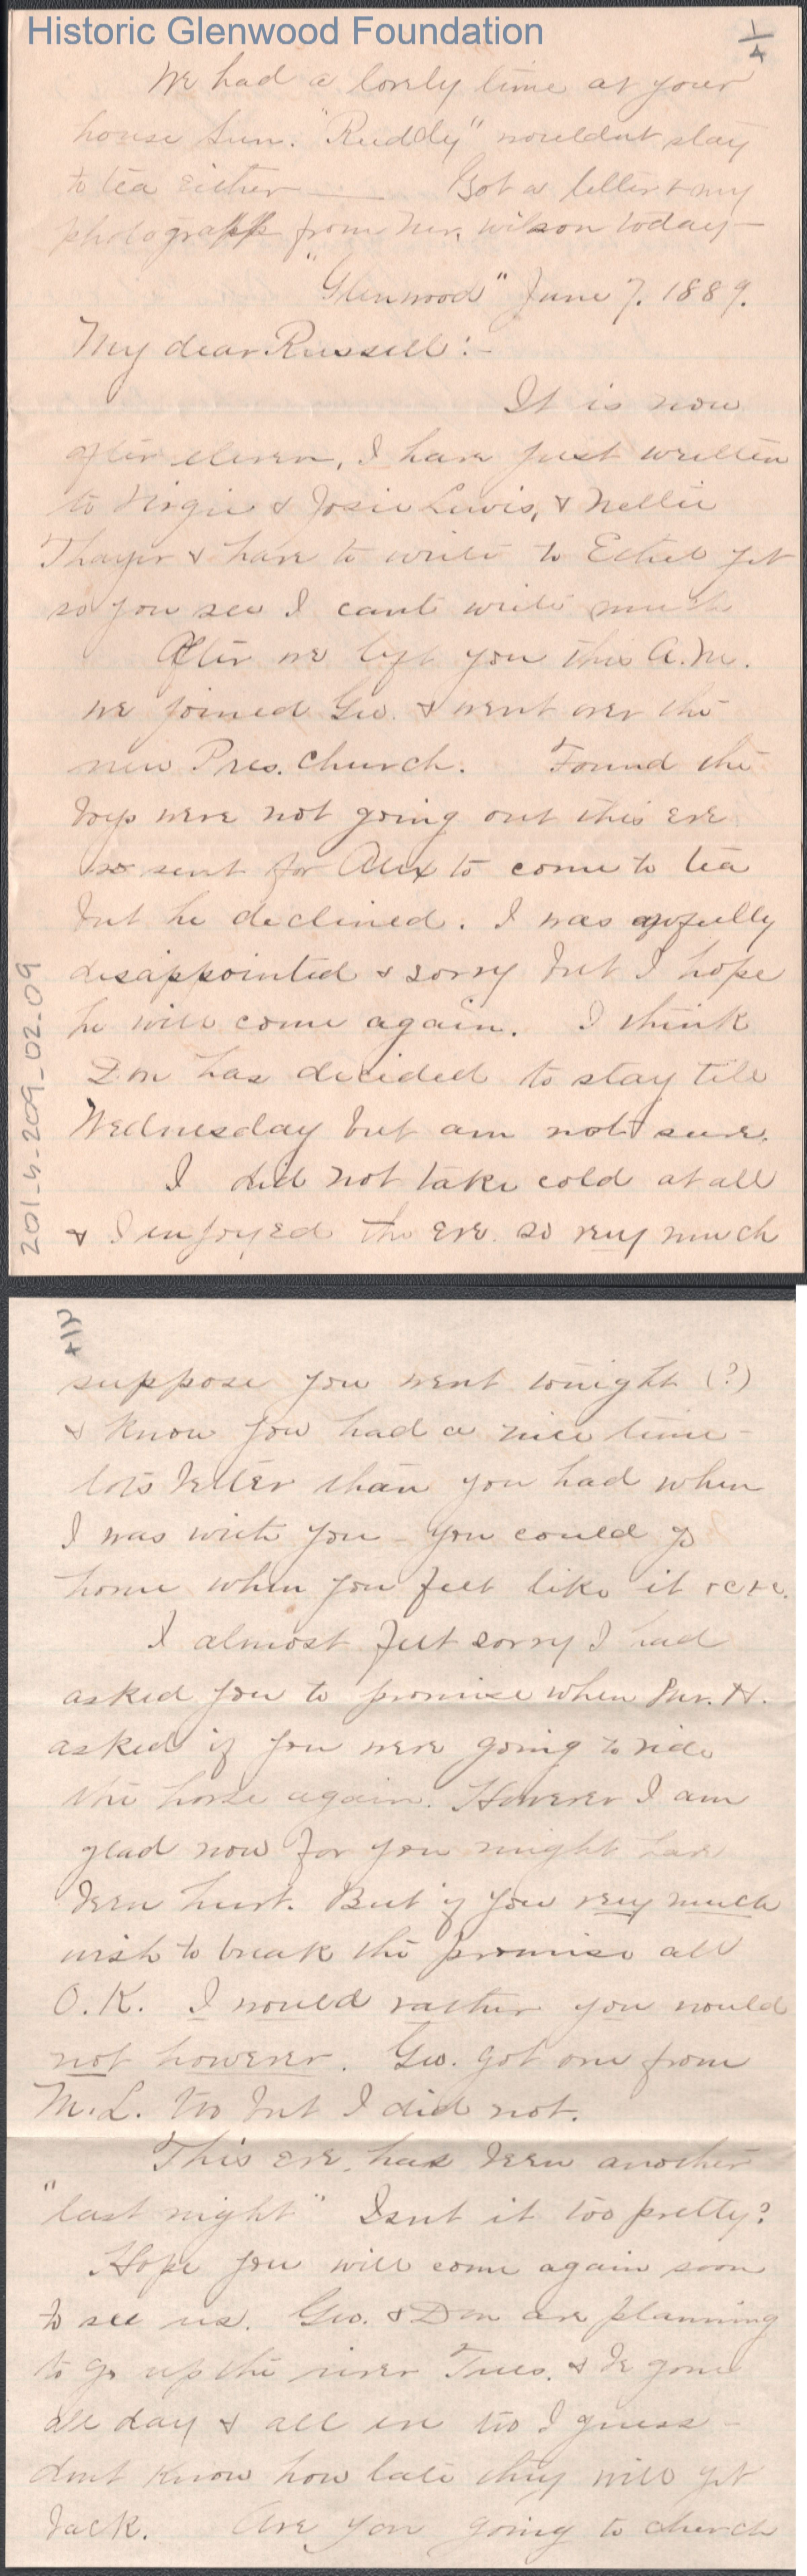 Historic Glenwood Foundation
1/4
We had a lovely time at your
house Sun. "Ruddy" wouldnt stay
to tea either — Got a letter & my
photograph from Mr. Wilson today —
"Glenwood" June 7. 1889.
My dear Russell:-
It is now
after eleven, I have just written
to Virgie & Josie Lewis, & Nellie
Thayer & have to write to Ethel yet
so you see I cant write much
After we left you this A.M.
we joined Geo. & went over the
new Pres. Church. Found the
boys were not going out this eve
so sent for Alex to come to tea
but he declined. I was awfully
disappointed & sorry but I hope
he will come again. I think
Don has decided to stay till
Wednesday but am not sure.
I did not take cold at all
& I enjoyed the eve. so very much
201.5-209-02.09
2/4
suppose you went tonight (?)
& know you had a nice time -
lots better than you had when
I was with you - you could go
home when you felt like it &c &c.
I almost felt sorry I had
asked you to promise when Mr. H.
asked if you were going to ride
the horse again. However I am
glad now for you might have
been hurt. But if you very much
wish to break the promise all
O.K. I would rather you would
not however. Geo. got one from
M.L. too but I did not.
This eve. has been another
"last night" Isnt it too pretty?
Hope you will come again soon
to see us. Geo. & Don are planning
to go up the river Tues. & be gone
all day & all eve too I guess -
dont know how late they will get
back. Are you going to church